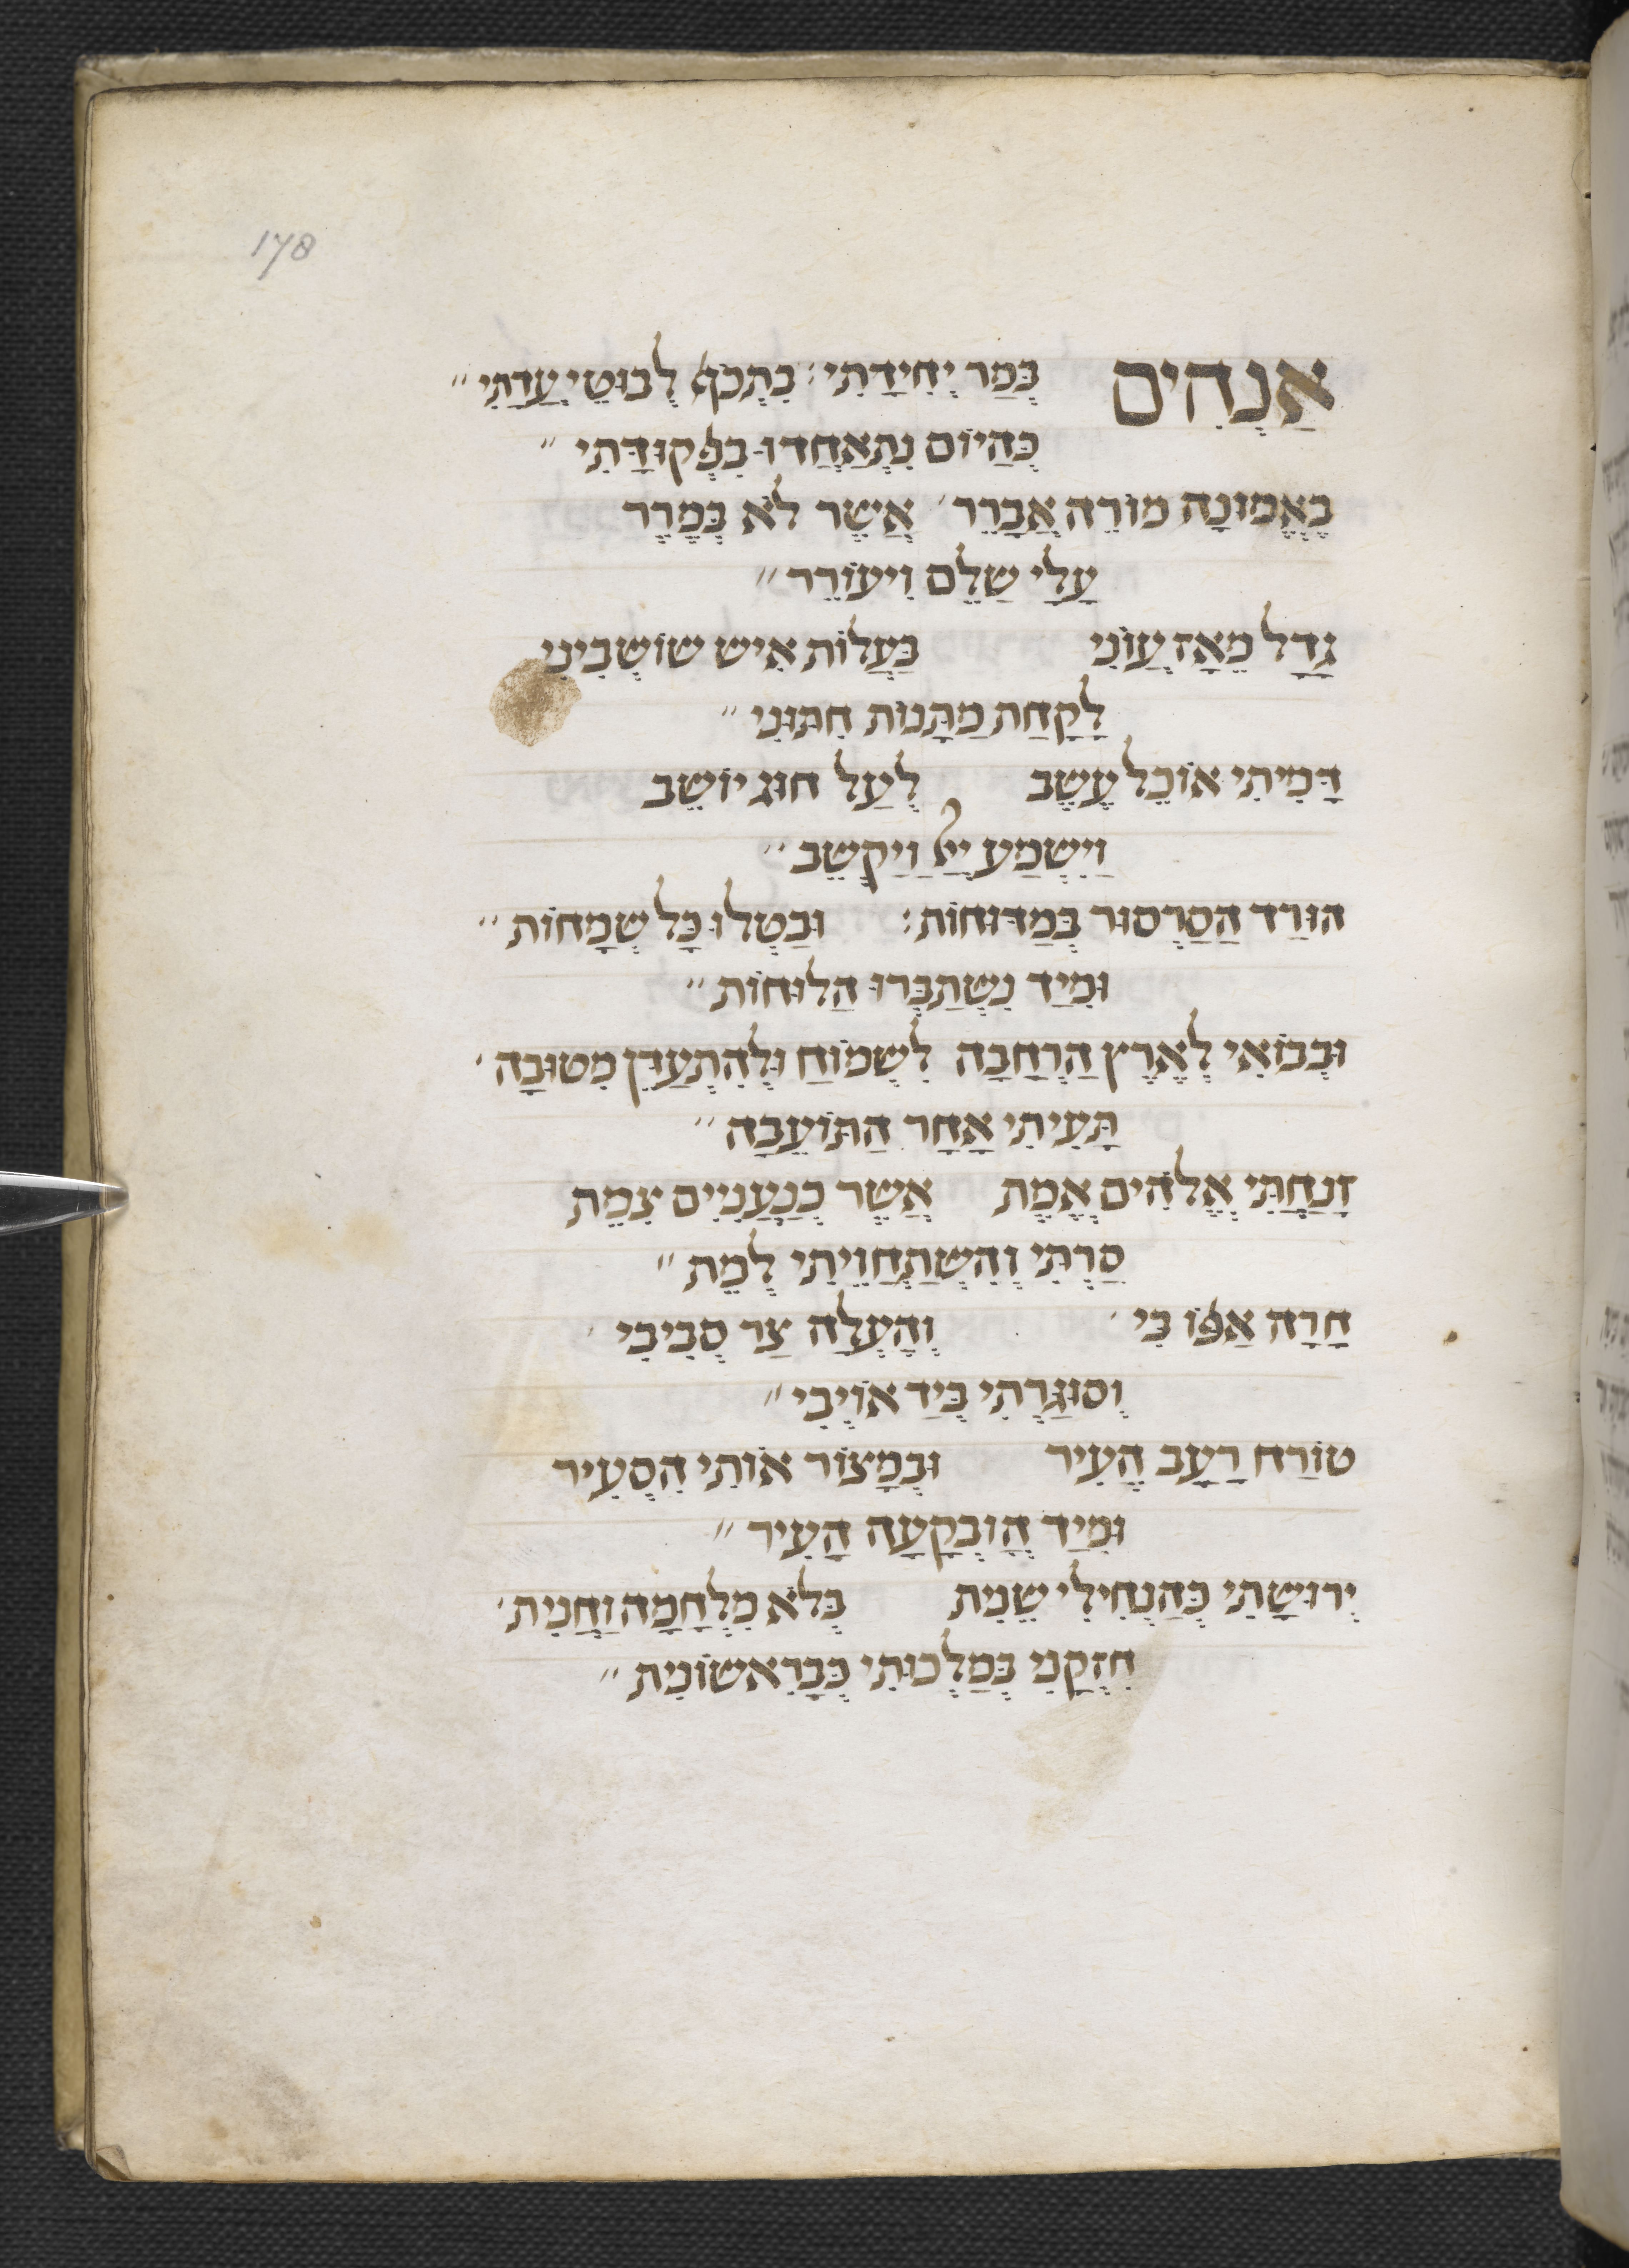 178
אַנְהִים בְּמַר יְחִידָתִי: בִּתְכֹף לְבוּטֵי עֲדָתִי״
כְּהַיּוֹם נִתְאַחֲדוּ בִפְקוּדָּתִי״
בֶּאֱמוּנָה מוֹרֶה אֲבָרֵר׳ אֲשֶׁר לֹא בְּמֶרֶר
עָלַי שַׁלֵּם וִיעוֹרֵר״
גָּדַל מֵאָז עֲוֹנִי בַּעֲלוֹת אִישׁ שׁוֹשְׁבִינִי
לָקַחַת מַתְּנוֹת חִתּוּנִי״
דָּמִיתִי אוֹכֵל עֵשֶׂב לְעַל חוּג יוֹשֵׁב
וַיִּשְׁמַע יְיָ וַיַּקְשֵׁב״
הוּרַד הַסַּרְסוּר בְּמַדּוּחוֹת: וּבַטְּלוּ כָּל שְׂמָחוֹת״
וּמִיַּד נִשְׁתַּבְּרוּ הַלּוּחוֹת״
וּבְבוֹאִי לְאֶרֶץ הַרְחָבָה לִשְׂמוֹחַ וּלְהִתְעַדֵּן מִטּוּבָהּ׳
תָּעִיתִי אַחַר הַתּוֹעֵבָה״
זָנַחְתִּי אֱלֹהִים אֱמֶת אֲשֶׁר כְּנַעֲנִיִּים צִמֵּת
סַרְתִּי וְהִשְׁתַּחֲוֵיתִי לְמֵת״
חָרָה אַפּוֹ בִּי׳ וְהֶעֱלָה צַר סְבִיבִי׳
וְסוּגַּרְתִּי בְּיַד אוֹיְבִי״
טוֹרַח רָעָב הֵעִיר וּבְמָצוֹר אוֹתִי הִסְעִיר
וּמִיַּד הֳובְקָעָה הָעִיר״
יְרוּשָׁתִי כְּהַנְחִילִי שֵׁנִית בְּלֹא מִלְחָמָה וַחֲנִית׳
חִזְּקַנִי בְּמַלְכוּתִי כְּבָרִאשׁוֹנִית״